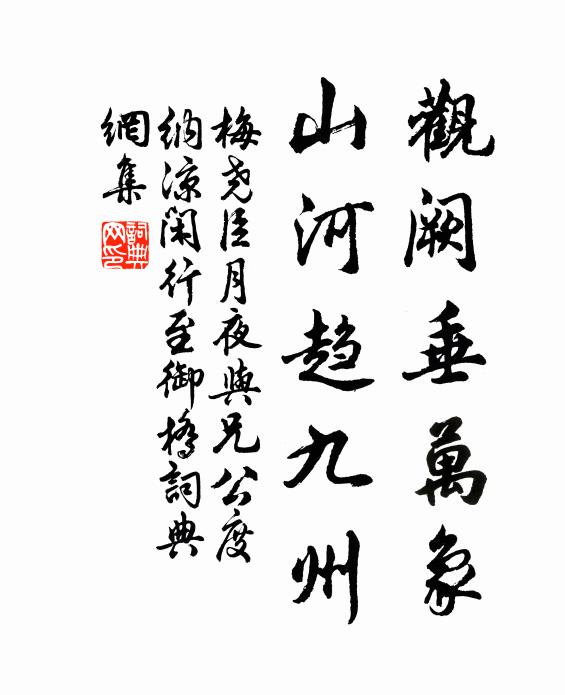 觀闕垂萬象
山河趨九州
梅堯臣月夜與兄公度
納涼閑行至御橋詞典
網集
詞典網印